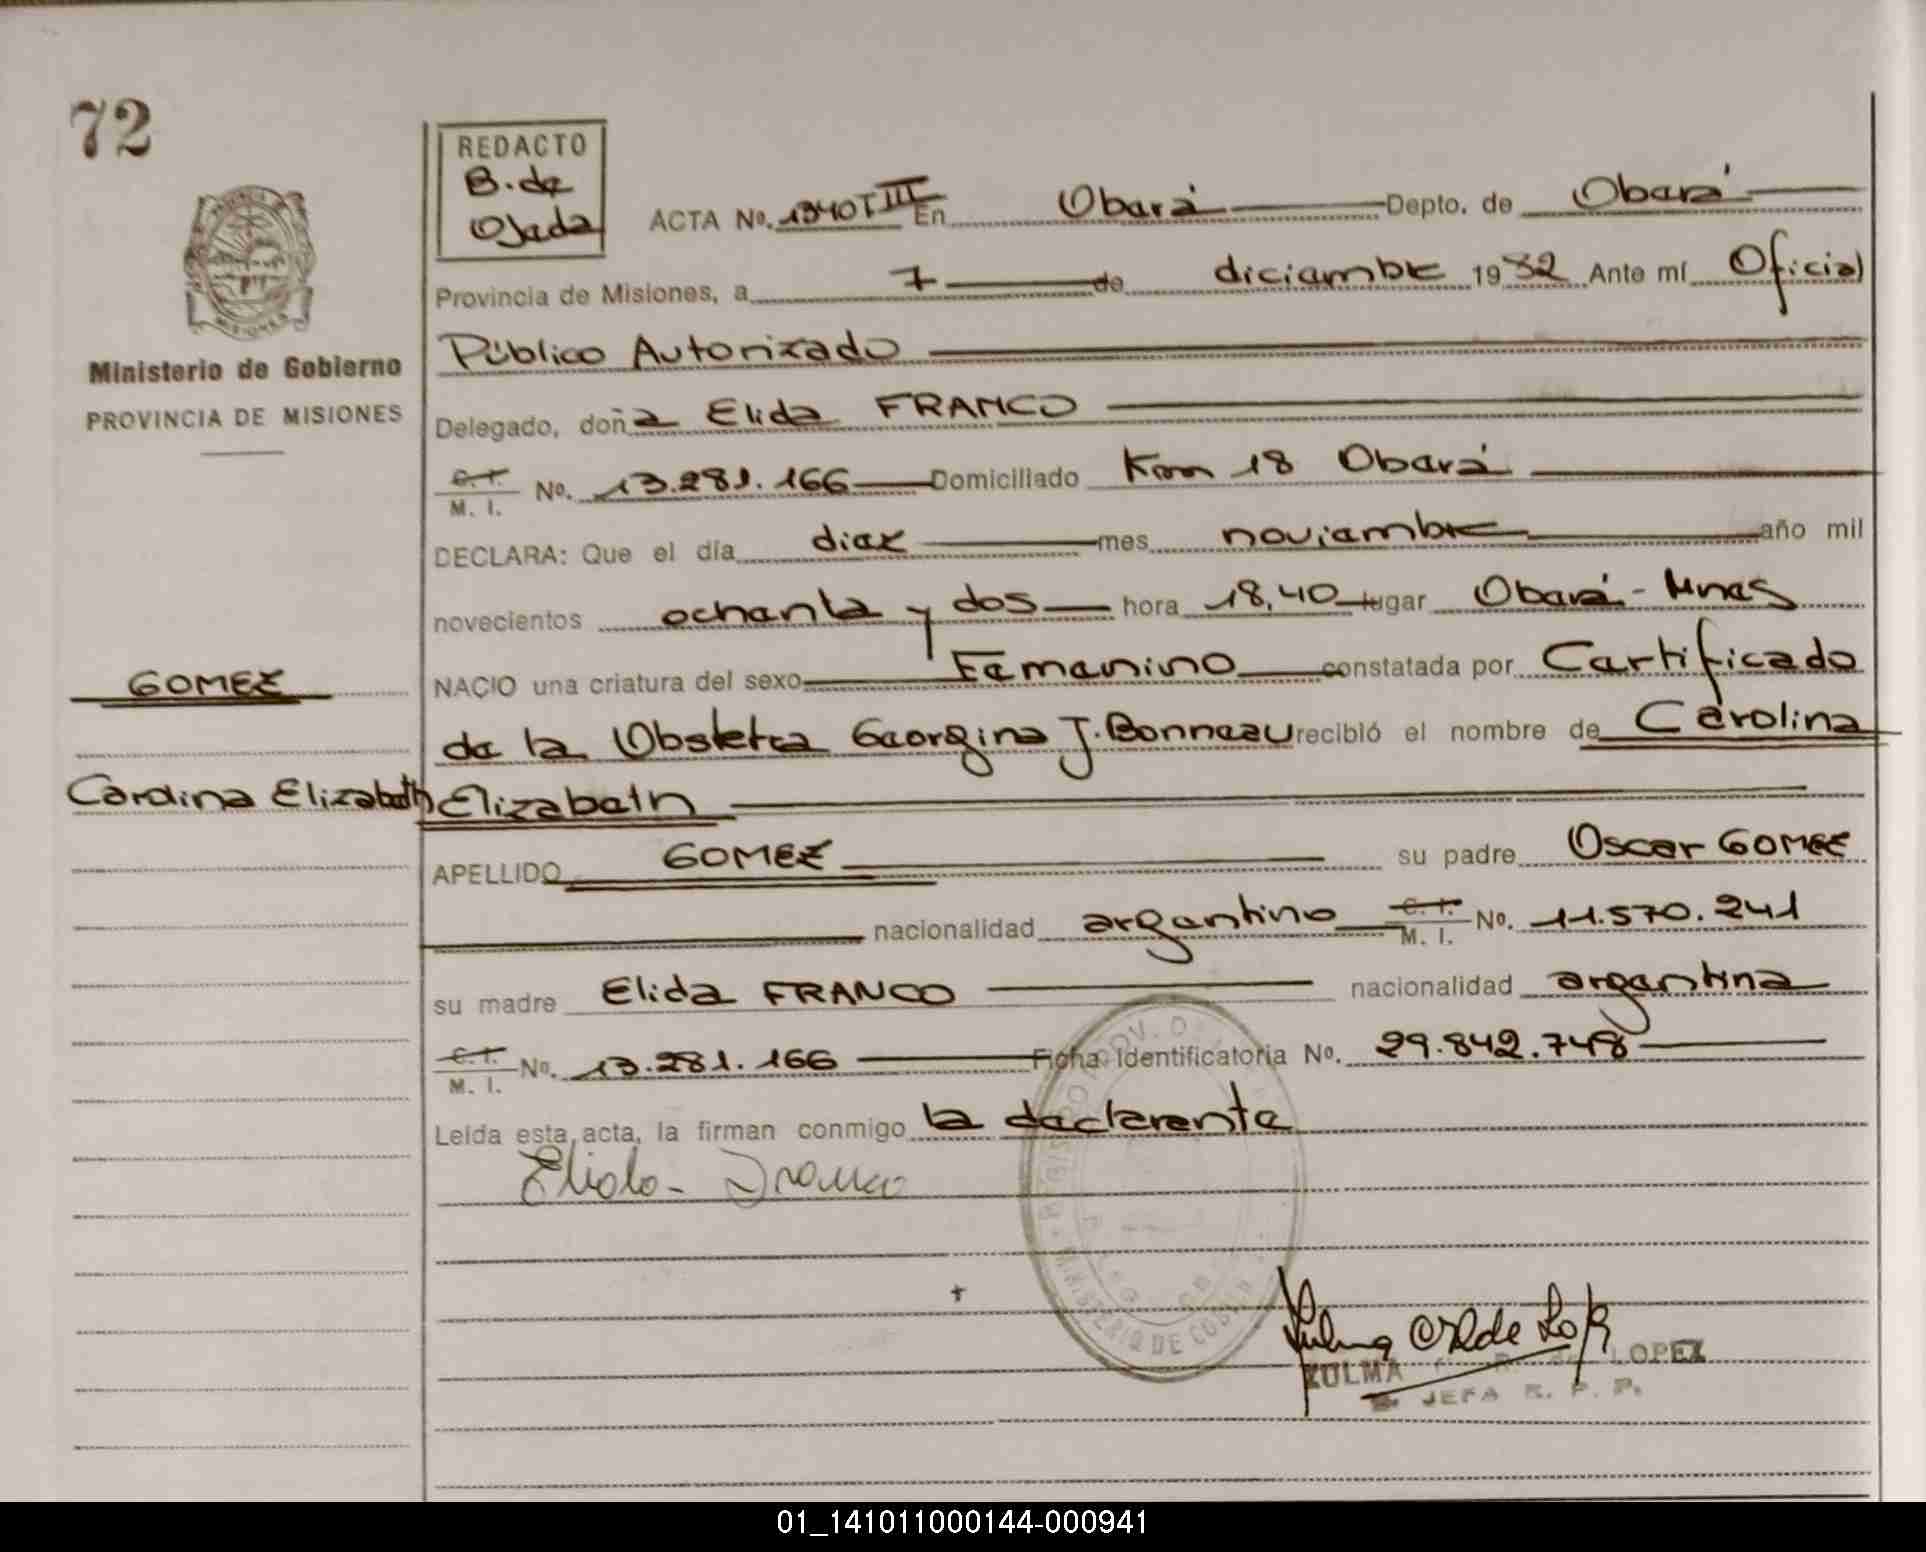 72
REDACTO
B. de
Ojeda
ACTA No. 1340 T III En Oberá Depto. de Oberá
Provincia de Misiones, a 7 de diciembre 1982 Ante mí Oficial
Público Autorizado
Ministerio de Gobierno
PROVINCIA DE MISIONES
Delegado, doña Elida FRANCO
C. I.
M. I. No. 13.281.166 Domiciliado Km 18 Oberá
DECLARA: Que el día diez mes noviembre año mil
novecientos ochenta y dos hora 18,40 lugar Oberá - Mnes
GOMEZ
NACIO una criatura del sexo Femenino constatada por Certificado
de la Obstetra Georgina J. Bonneau recibió el nombre de Carolina
Carolina Elizabeth
Elizabeth
APELLIDO GOMEZ su padre Oscar GOMEZ
nacionalidad argentino C. I. M. I. No. 11.570.241
su madre Elida FRANCO nacionalidad argentina
C. I.
M. I. No. 13.281.166 Ficha Identificatoria No. 29.842.748
Leída esta acta, la firman conmigo la declarante
Elida Franco
MINISTERIO DE GOBIER
ZULMA LOPEZ
JEFA R. P. P.
01_141011000144-000941